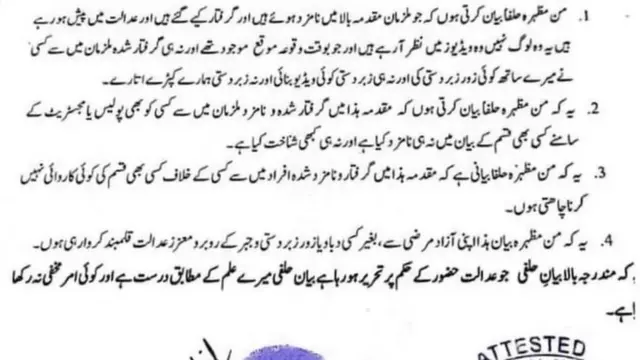 1. من مظہرہ حلفا بیان کرتی ہوں کہ جو ملزمان مقدمہ بالا میں نامزد ہوئے ہیں اور گرفتار کیے گئے ہیں اور عدالت میں پیش ہو رہے
ہیں یہ وہ لوگ نہیں جو وڈیوز میں نظر آرہے ہیں اور جو بوقت وقوعہ موقع موجود تھے اور نہ ہی گرفتار شدہ ملزمان میں سے کسی
نے میرے ساتھ کوئی زور زبردستی کی اور نہ ہی زبردستی کوئی ویڈیو بنائی اور نہ زبردستی ہمارے کپڑے اتارے۔
2. یہ کہ من مظہرہ حلفا بیان کرتی ہوں کہ مقدمہ ہذا میں گرفتار شدہ و نامزد ملزمان میں سے کسی کو بھی پولیس یا مجسٹریٹ کے
سامنے کسی بھی قسم کے بیان میں نہ ہی نامزد کیا ہے اور نہ ہی کبھی شناخت کیا ہے۔
3. یہ کہ من مظہرہ حلفا بیانی ہے کہ مقدمہ ہذا میں گرفتار و نامزد شدہ افراد میں سے کسی کے خلاف کسی بھی قسم کی کوئی کاروائی نہیں
کرنا چاھتی ہوں۔
4. یہ کہ من مظہرہ بیان ہذا اپنی آزاد مرضی سے، بغیر کسی دباو یا زور زبردستی و جبر کے روبرو معزز عدالت قلمبند کروا رہی ہوں۔
کہ مندرجہ بالا بیان حلفی جو عدالت حضور کے حکم پر تحریر ہو رہا ہے بیان حلفی میرے علم کے مطابق درست ہے اور کوئی امر مخفی نہ رکھا
ہے۔
ATTESTED